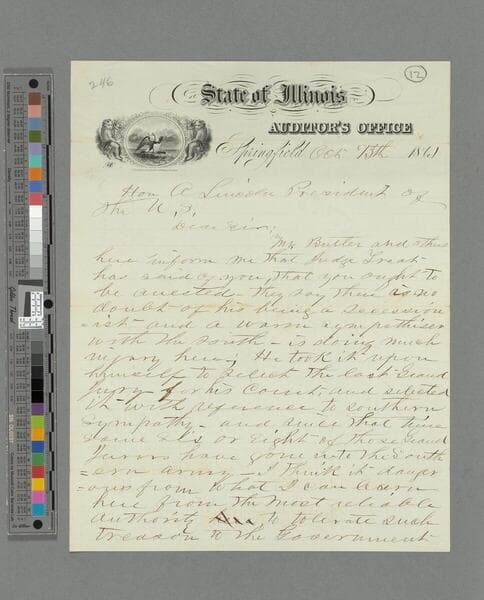 246
12
State of Illinois
AUDITOR'S OFFICE
Springfield Oct 13th 1861
Hon A Lincoln President of
the U. S.
Dear Sir;
Mr Butler and others
here inform me that Judge Treat
has said of you, that you ought to
be arrested. They say there is no
doubt of his being a secession
=ist and a warm sympathiser
with the South - is doing much
injury here. He took it upon
himself to select the last Grand
Jury for his Court, and selected
it with reference to southern
sympathy - and since that time
some six or eight of those Grand
Jurors have gone into the South
=ern army. I think it danger
=ous from what I can learn
here from the most reliable
authority to tolerate such
treason to the Government